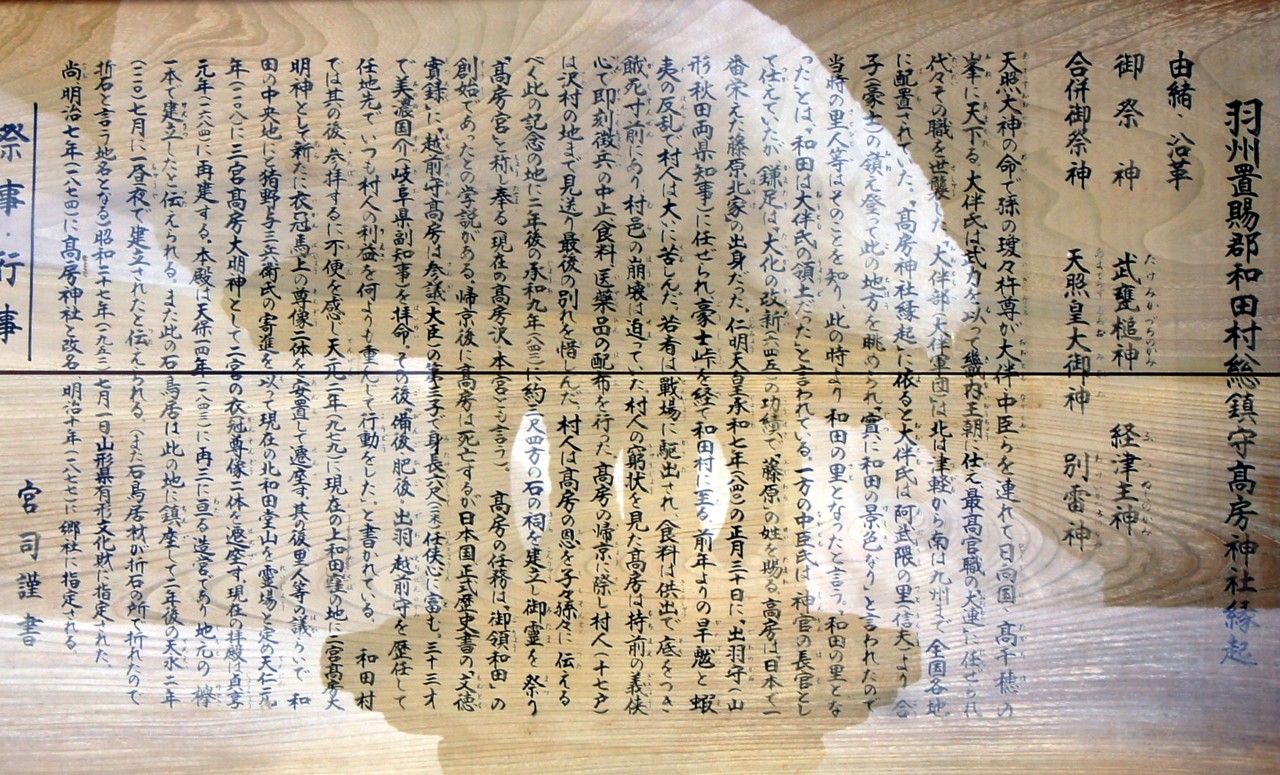 羽州置賜郡和田村総鎮守髙房神社縁起
由緒、沿革
御祭神 武甕槌神 経津主神
合併御祭神 天照皇大御神 別雷神
天照大神の命で孫の瓊々杵尊が大伴中臣らを連れて日向国 高千穂の
峯に天下る。大伴氏は武力を以って畿内王朝に仕え最高官職の大連に任せられ
代々その職を世襲した。「大伴部(大伴軍団)」は北は津軽から南は九州まで全国各地
に配置されていた。「髙房神社縁起」に依ると大伴氏は阿武隈の里(信夫)より合
子(豪士)の嶺え登って此の地方を眺められ「實に和田の景色なり」と言われたので
当時の里人等はそのことを知り、此の時より和田の里となったと言う。和田の里とな
ったとは、「和田は大伴氏の領土だった」と言われている。一方の中臣氏は神官の長官とし
て仕えていたが鎌足は「大化の改新(六四五)」の功績で「藤原」の姓を賜る。高房は日本で一
番栄えた藤原北家の出身だった。仁明天皇承和七年(八四〇)の正月三十日に、出羽守(山
形秋田両県知事)に任せられ、豪士峠を経て和田村に至る。前年よりの旱魃と蝦
夷の反乱で村人は大いに苦しんだ。若者は戦場に駆出され、食料は供出で底をつき
餓死寸前にあり村邑の崩壊は迫っていた。村人の窮状を見た高房は持前の義侠
心で即刻徴兵の中止、食料、医薬品の配布を行った。高房の帰京に際し村人(十七戸)
は沢村の地まで見送り最後の別れを惜しんだ。村人は高房の恩を子々孫々に伝える
べく此の記念の地に二年後の承和九年(八四二)に約一尺四方の石の祠を建立し御霊を祭り
「髙房宮」と称し奉る(現在の髙房沢、本宮とも言う)。 高房の任務は「御領和田」の
創始であったとの学説がある。帰京後に高房は死亡するが日本国正式歴史書の「文徳
實録」に「越前守高房は参議(大臣)の第三子で身長六尺(二米)任侠に富む。三十三才
で美濃国介(岐阜県副知事)を拝命、その後、備後、肥後、出羽、越前守を歴任して
任地先でいつも村人の利益を何よりも重んして行動をした。」と書かれている。 和田村
では其の後、参拝するに不便を感し天元二年(九七九)に現在の上和田窪の地に二宮髙房大
明神として新たに衣冠馬上の尊像一体を安置して遷座す。其の後里人等の議らいで和
田の中央地にと猪野与三兵衛氏の寄進を以って現在の北和田堂山を霊場と定め天仁元
年(一一〇八)に三宮髙房大明神として二宮の衣冠尊像一体を遷座す。現在の拝殿は貞享
元年(一六八四)に再建する。本殿は天保一四年(一八四三)に再三に亘る造宮であり地元の欅
一本で建立したと伝えられる。また此の石鳥居は此の地に鎮座して二年後の天永二年
(一一一〇)七月に一昼夜で建立されたと伝えられる。(また石鳥居材が折石の所で折れたので
折石と言う地名となる)昭和二十七年(一九五二)七月一日山形県有形文化財に指定された。
尚明治七年(一八七四)に髙房神社と改名 明治十年(一八七七)に郷社に指定される。
宮司謹書
祭事・行事